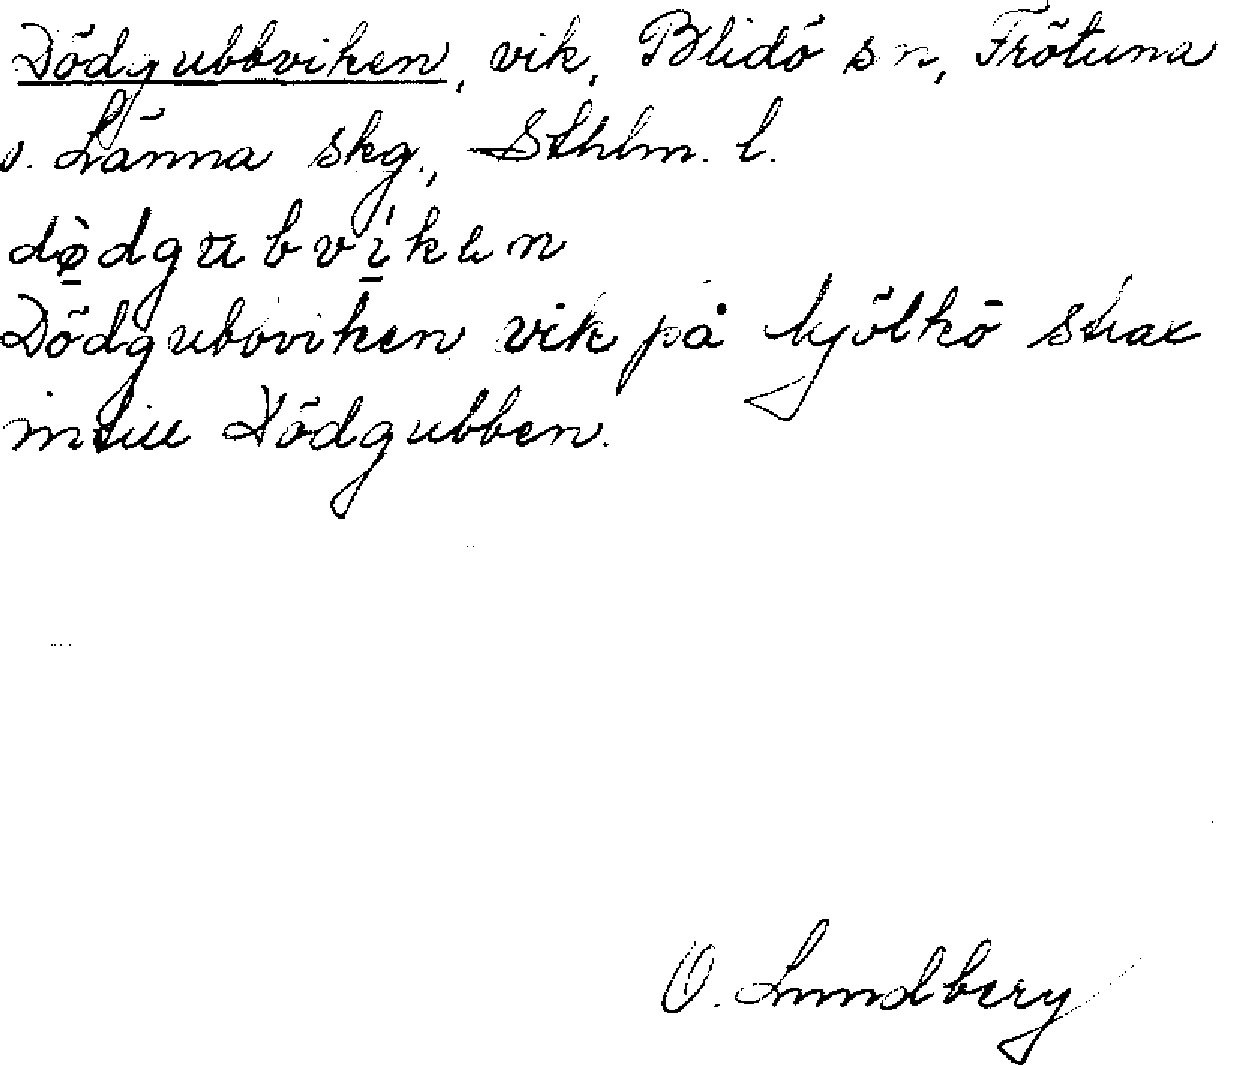 Dödgubbviken, vik, Blidö sn, Frötuna
o. Länna skg., Sthlm. l.
dø̠̀dgubví̠ken
Dödgubbviken vik på Yxlö strax
intill Dödgubben.
O. Lundberg